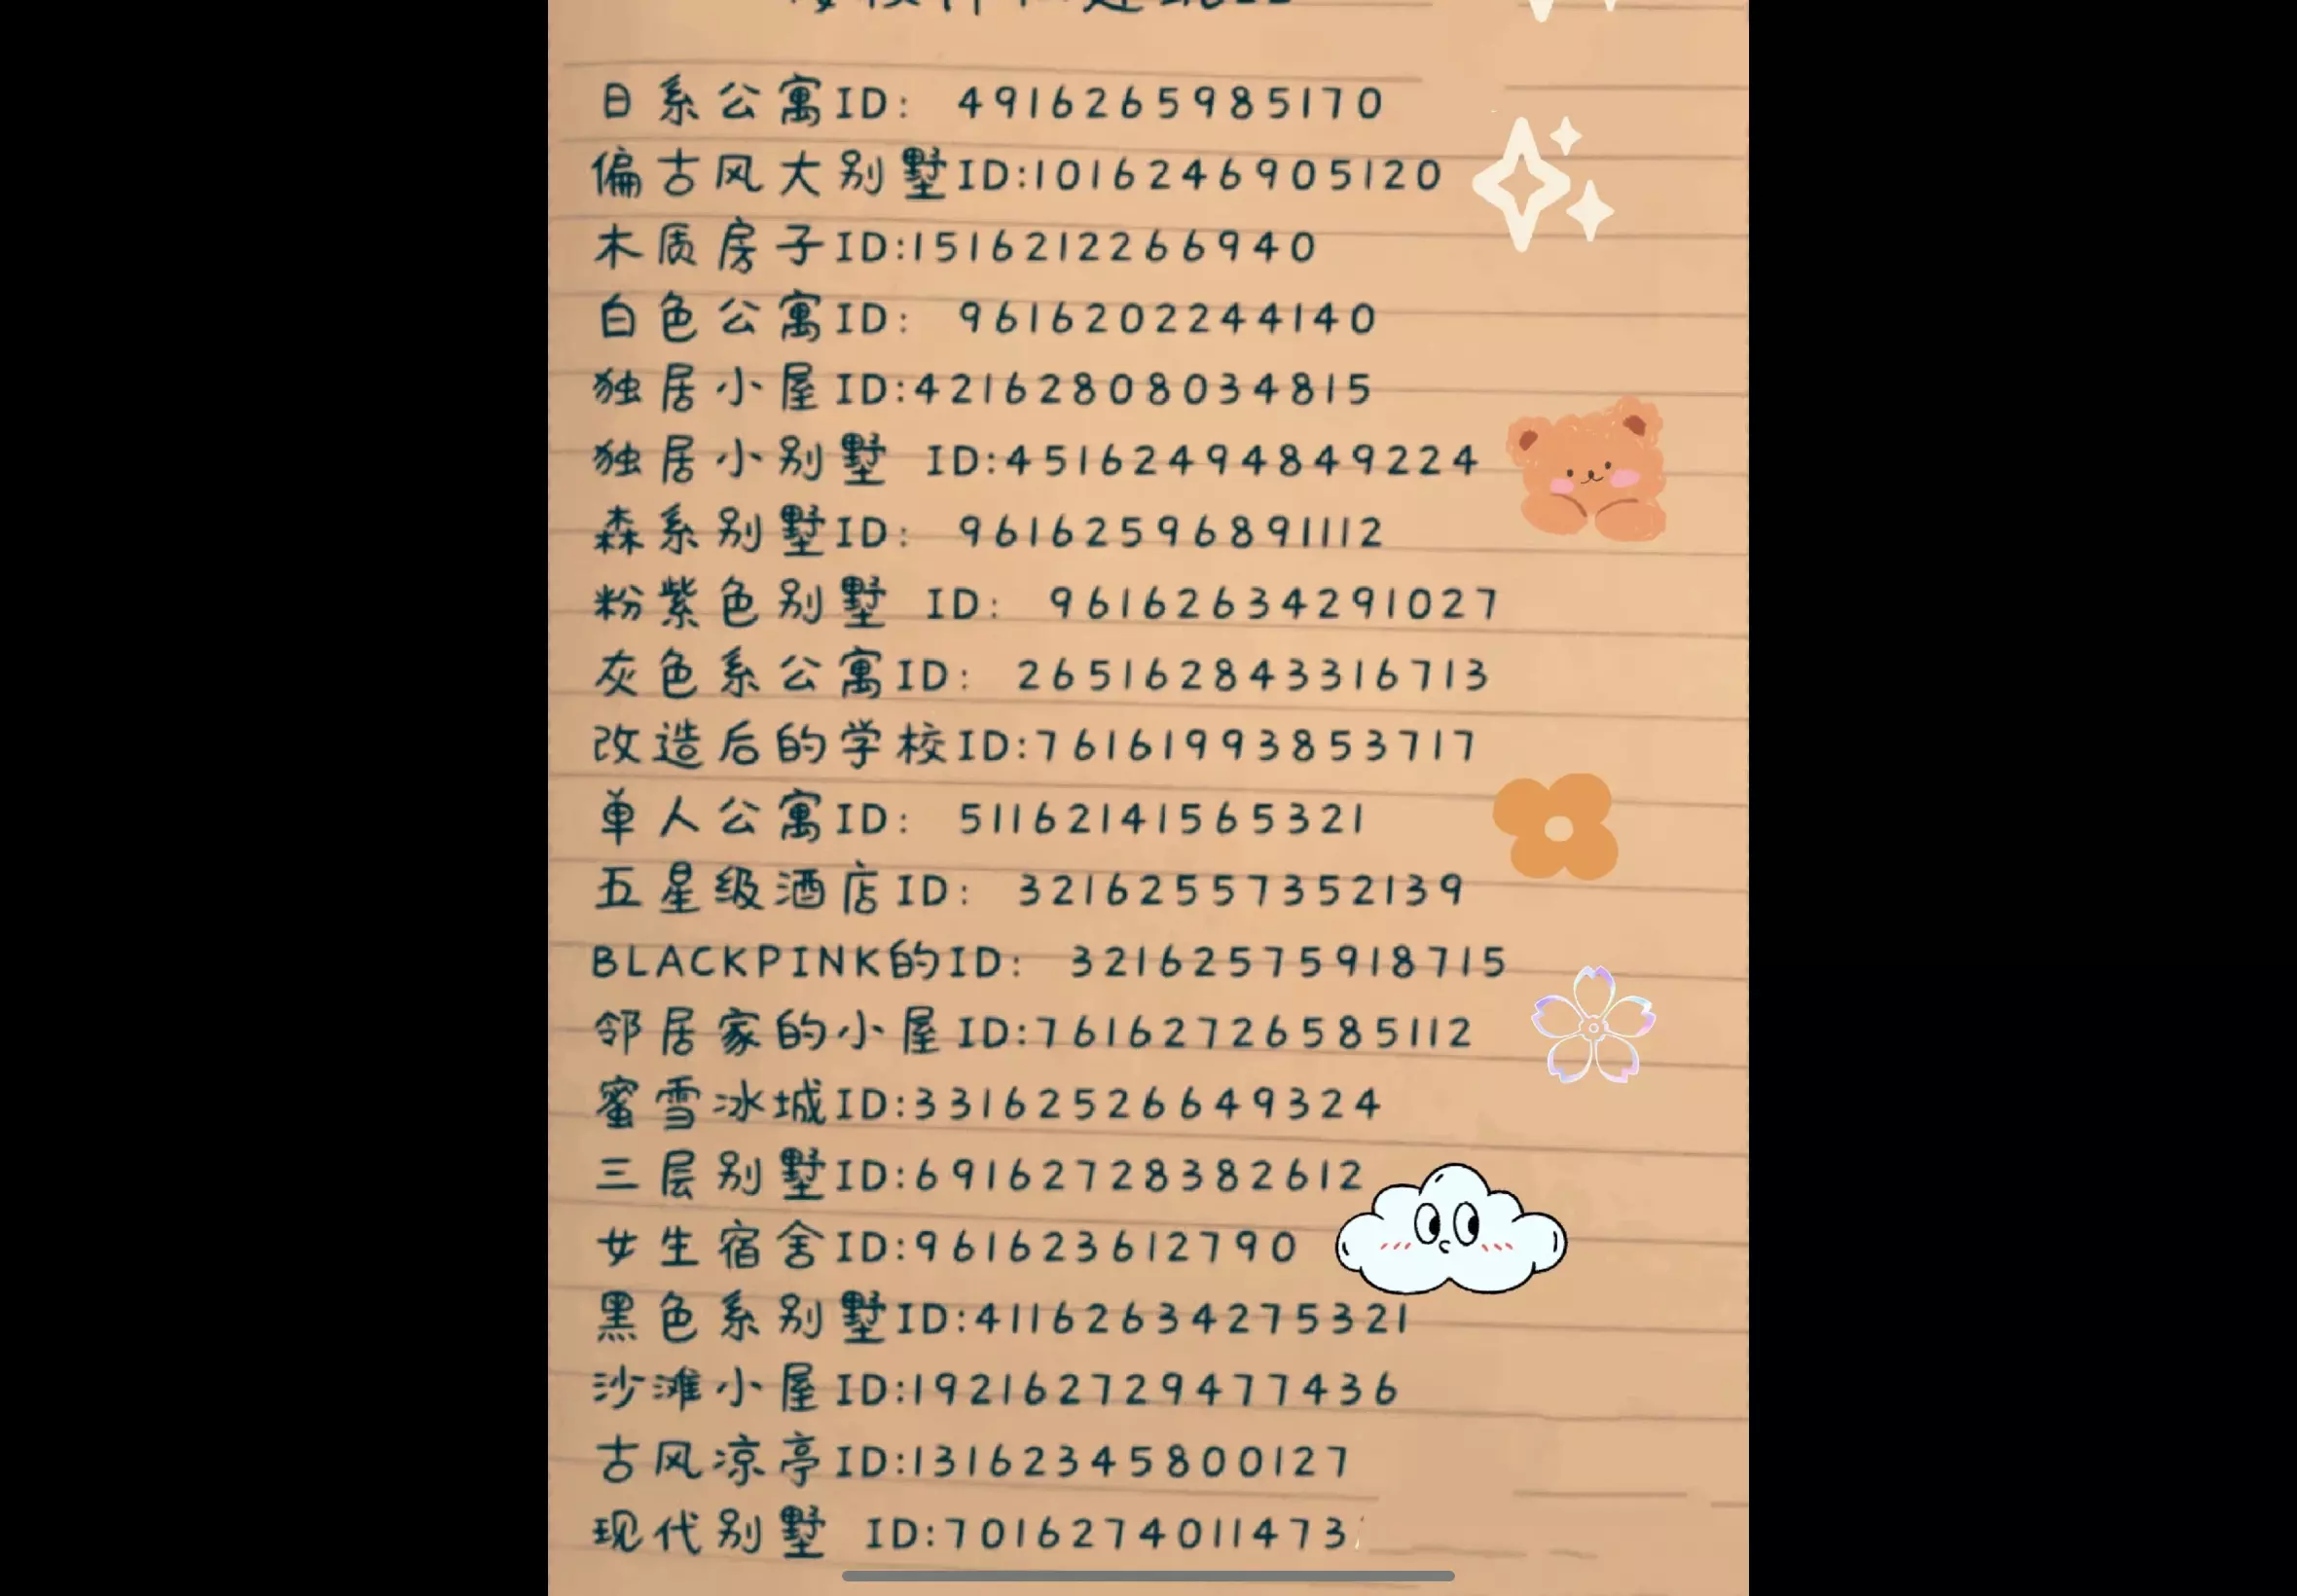 日系公寓ID: 4916265985170
偏古风大别墅ID:10162469051​20
木质房子ID:1516212266940
白色公寓ID: 9616202244140
独居小屋ID:42162808034815
独居小别墅 ID:45162494849224
森系别墅ID: 96162596891112
粉紫色别墅 ID: 96162634291027
灰色系公寓ID: 265162843316713
改造后的学校ID:76161993853717
单人公寓ID: 51162141565321
五星级酒店ID: 32162557352139
BLACKPINK的ID: 32162575918715
邻居家的小屋ID:76162726585112
蜜雪冰城ID:33162526649324
三层别墅ID:69162728382612
女生宿舍ID:961623612790
黑色系别墅ID:41162634275321
沙滩小屋ID:192162729477436
古风凉亭ID:13162345800127
现代别墅 ID:7016274011473